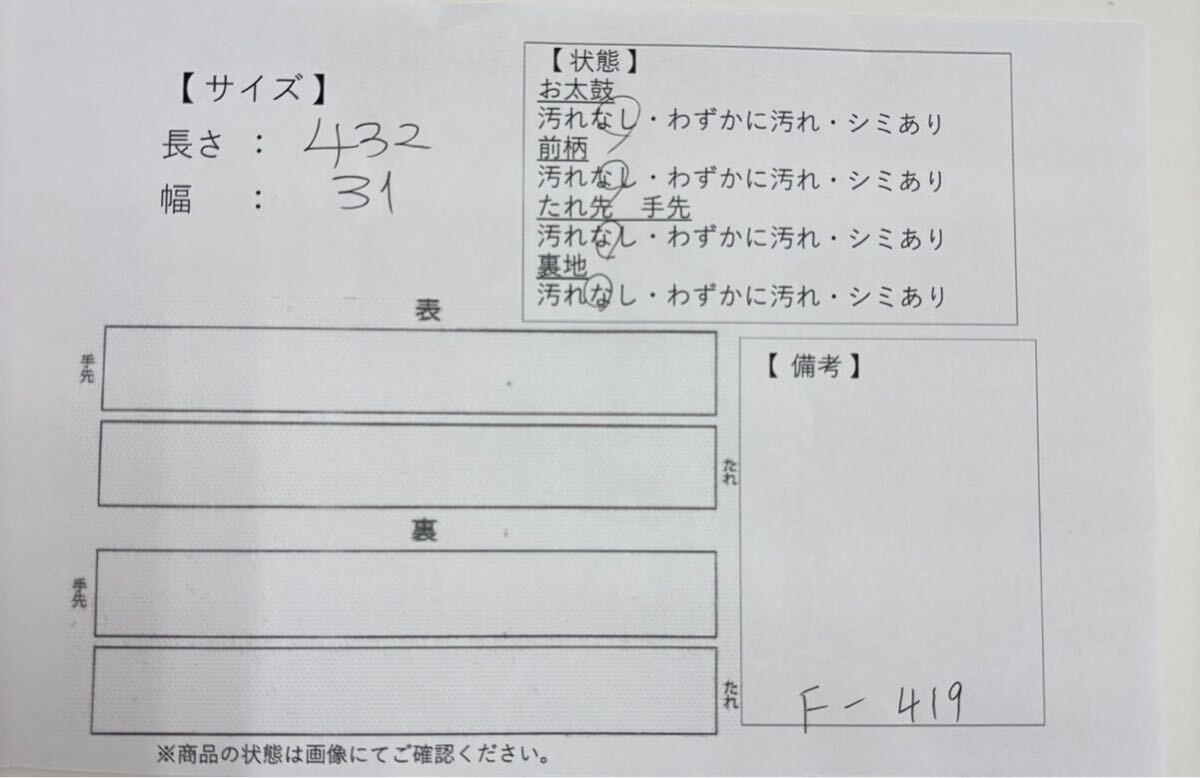 【 サイズ 】
長さ : 432
幅 : 31
【 状態 】
お太鼓
汚れなし・わずかに汚れ・シミあり
前柄
汚れなし・わずかに汚れ・シミあり
たれ先 手先
汚れなし・わずかに汚れ・シミあり
裏地
汚れなし・わずかに汚れ・シミあり
表
手先
たれ
裏
手先
たれ
【 備考 】
F- 419
※商品の状態は画像にてご確認ください。